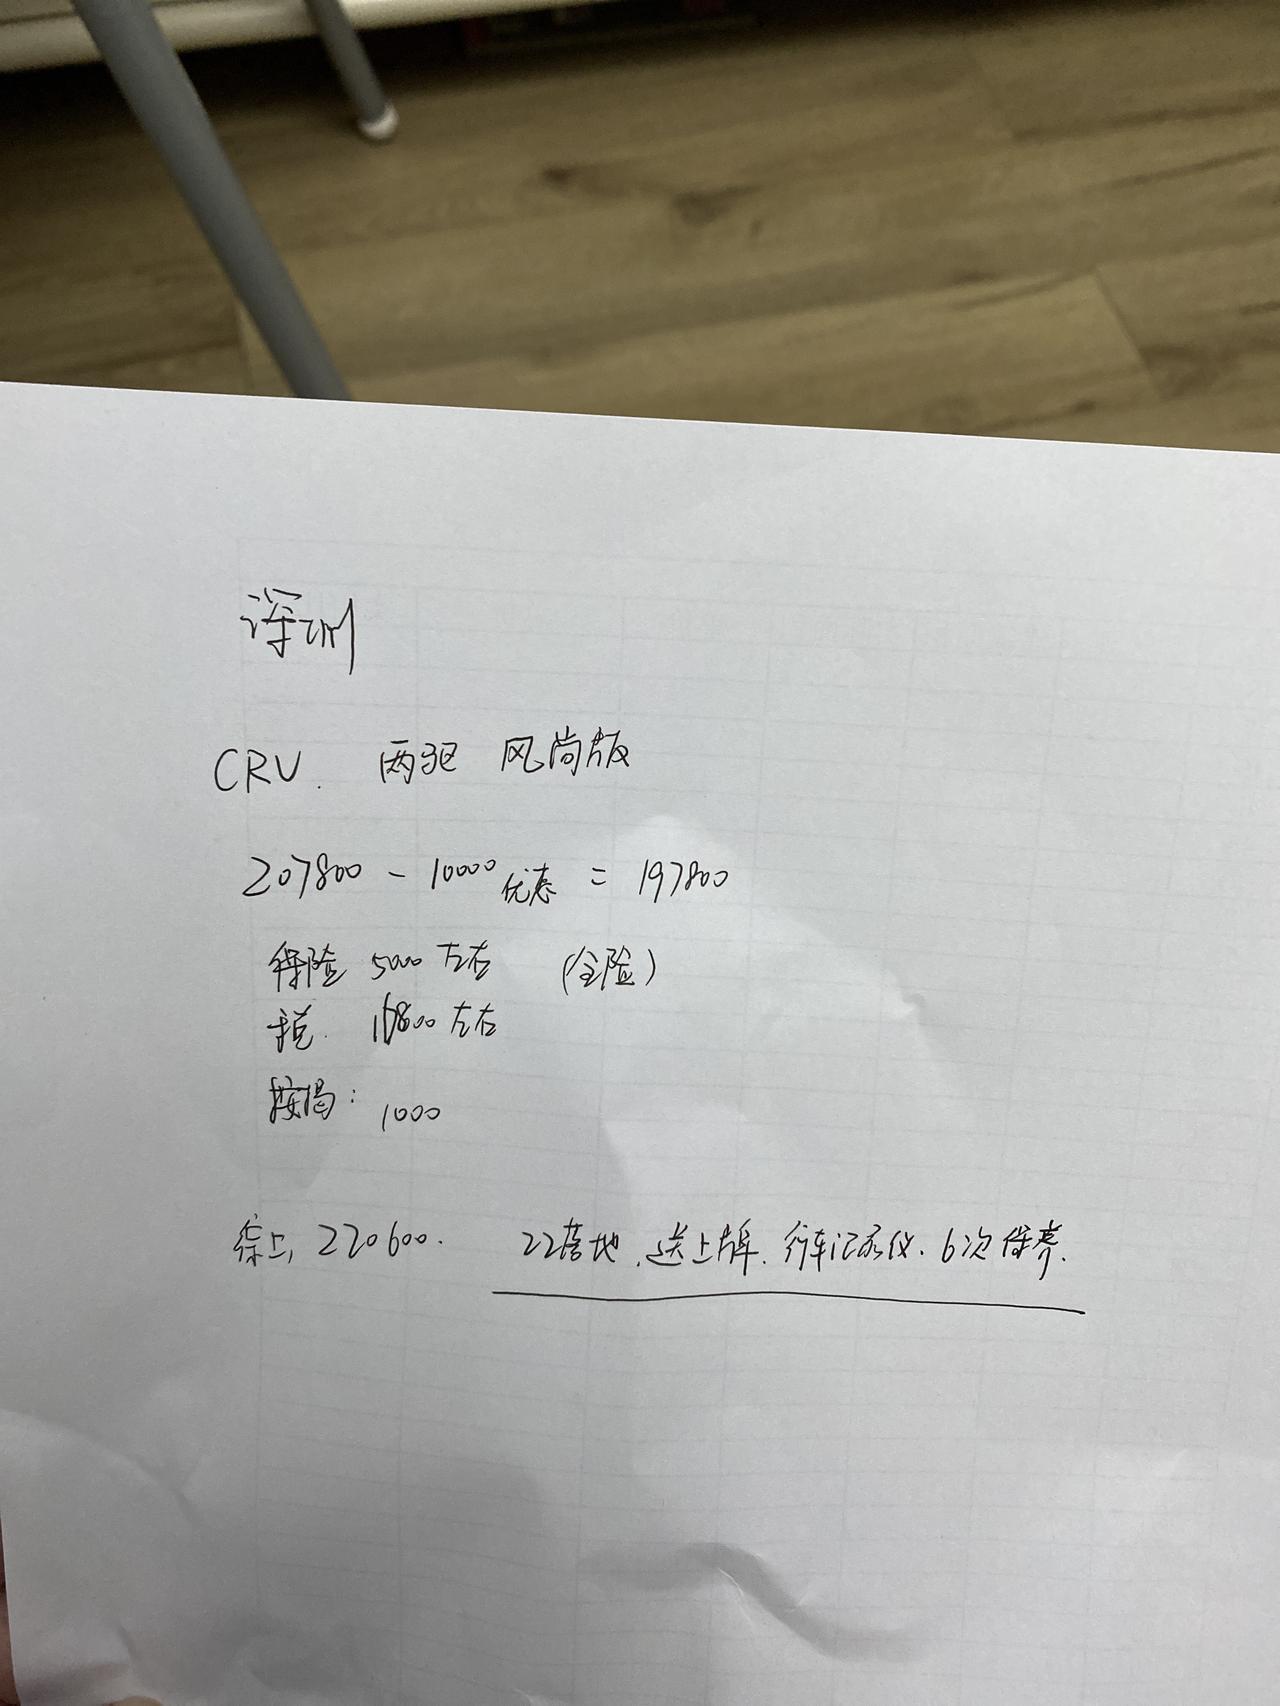 深圳
CRV. 两驱 风尚版
207800 - 10000优惠 = 197800
保险 5000左右 (全险)
税. 16800左右
按揭: 1000
综上, 220600. 22落地, 送上牌. 行车记录仪. 6次保养.